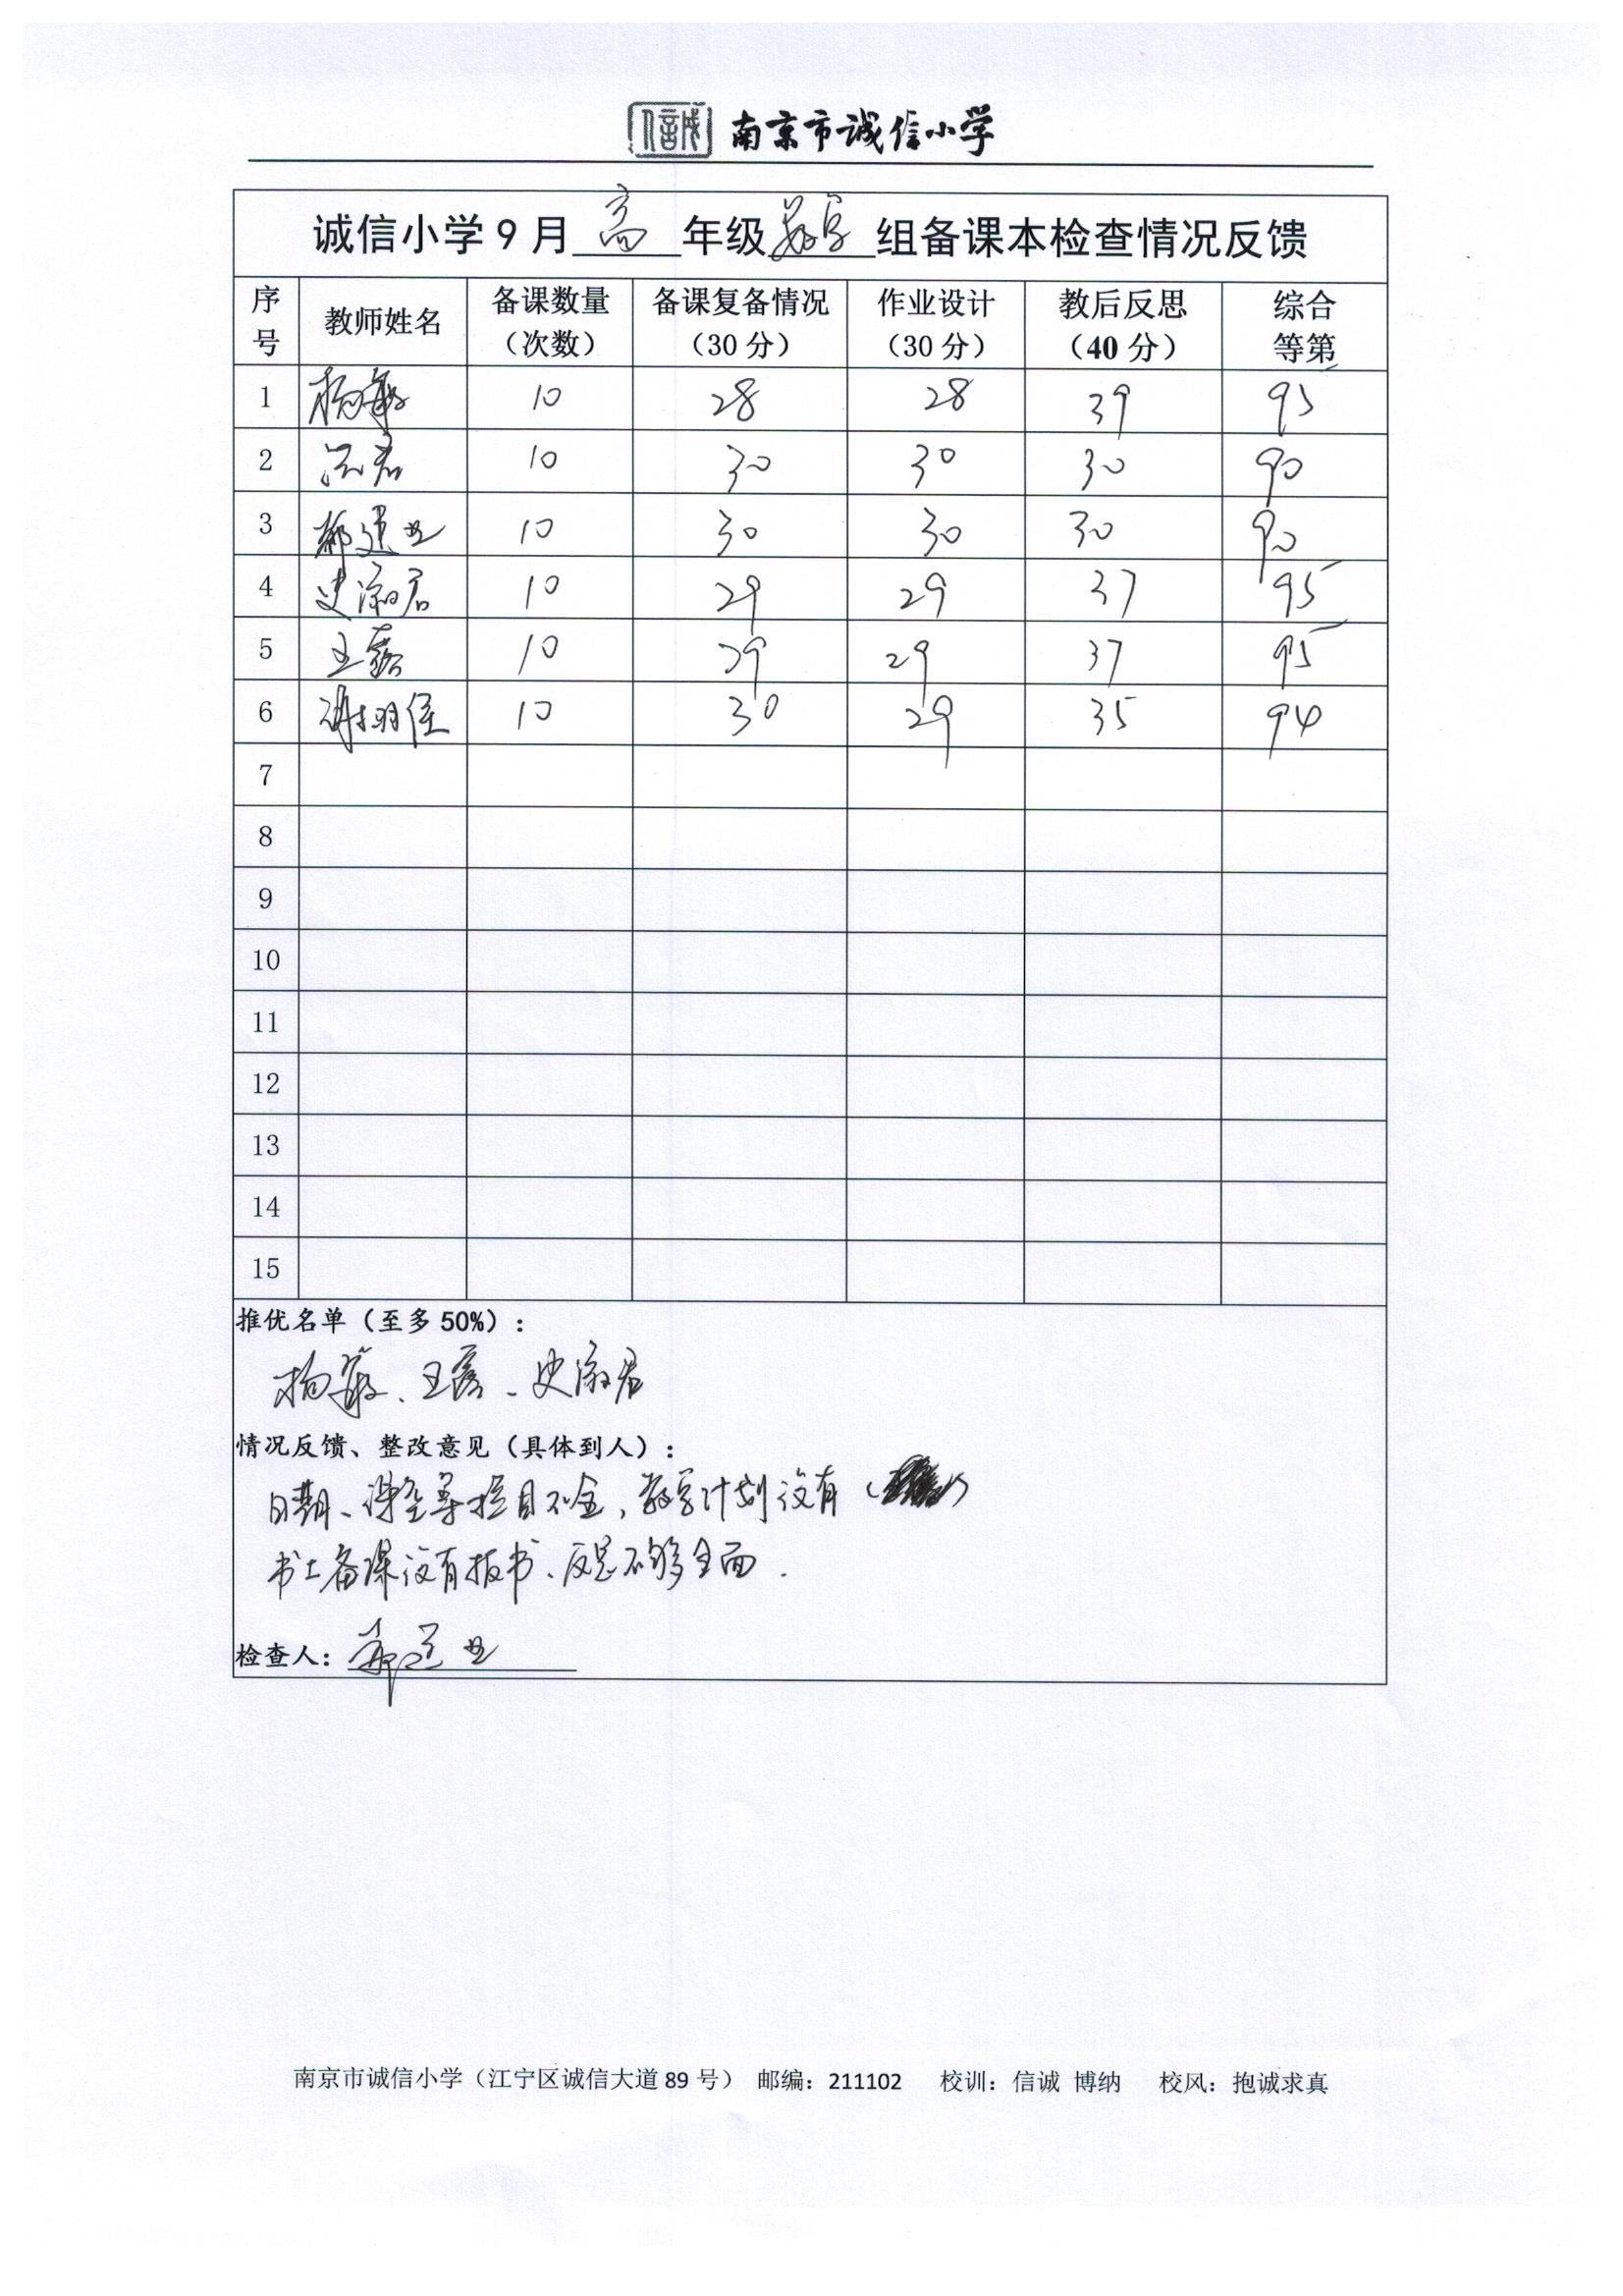 南京市诚信小学
诚信小学9月 高 年级 数学 组备课本检查情况反馈
序号 教师姓名 备课数量（次数） 备课复备情况（30分） 作业设计（30分） 教后反思（40分） 综合等第
1 杨敏 10 28 28 39 95
2 10 30 30 30 90
3 郝建业 10 30 30 30 90
4 史淑君 10 29 29 37 95
5 王露 10 29 29 37 95
6 谢翊 10 30 29 35 94
7
8
9
10
11
12
13
14
15
推优名单（至多50%）：
杨敏、王露、史淑君
情况反馈、整改意见（具体到人）：
日期、课型等栏目不全，教学计划没有
书上备课没有板书、反思不够全面.
检查人：郝建业
南京市诚信小学（江宁区诚信大道89号） 邮编：211102 校训：信诚 博纳 校风：抱诚求真